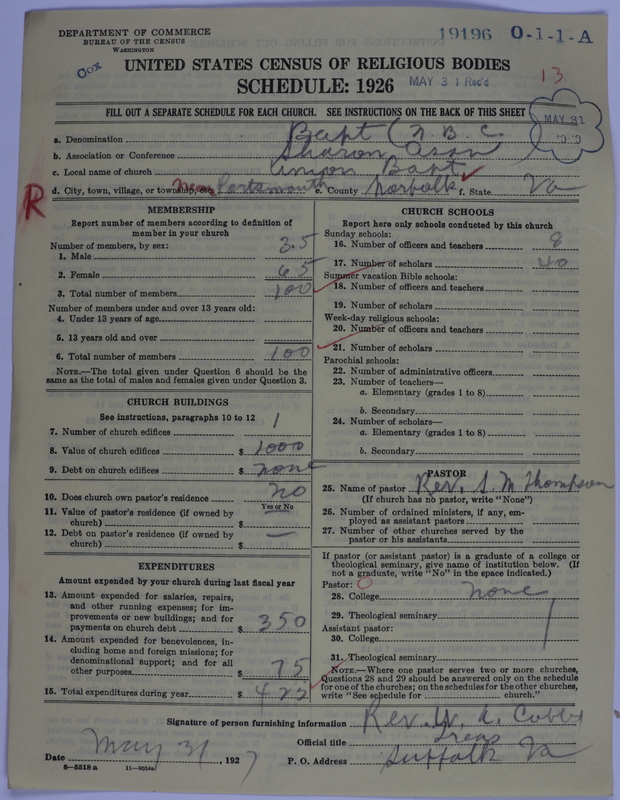 DEPARTMENT OF COMMERCE
BUREAU OF THE CENSUS
WASHINGTON
19196 O-1-1-A
Cox
UNITED STATES CENSUS OF RELIGIOUS BODIES
SCHEDULE: 1926
MAY 31 Rec'd
13
FILL OUT A SEPARATE SCHEDULE FOR EACH CHURCH. SEE INSTRUCTIONS ON THE BACK OF THIS SHEET
MAY 31
a. Denomination Bapt (N. B. C.
b. Association or Conference Sharon Assn
c. Local name of church Union Bapt
d. City, town, village, or township, near Portsmouth e. County Norfolk f. State Va
R
MEMBERSHIP
Report number of members according to definition of
member in your church
Number of members, by sex:
1. Male 35
2. Female 65
3. Total number of members 100
Number of members under and over 13 years old:
4. Under 13 years of age
5. 13 years old and over
6. Total number of members 100
NOTE.—The total given under Question 6 should be
same as the total of males and females given under Question 3.
CHURCH BUILDINGS
See instructions, paragraphs 10 to 12
7. Number of church edifices 1
8. Value of church edifices $ 1000
9. Debt on church edifices $ none
10. Does church own pastor's residence no
Yes or No
11. Value of pastor's residence (if owned by
church) $
12. Debt on pastor's residence (if owned by
church) $ —
EXPENDITURES
Amount expended by your church during last fiscal year
13. Amount expended for salaries, repairs,
and other running expenses; for im-
provements or new buildings; and for
payments on church debt $ 350
14. Amount expended for benevolences, in-
cluding home and foreign missions; for
denominational support; and for all
other purposes $ 75
15. Total expenditures during year $ 425
CHURCH SCHOOLS
Report here only schools conducted by this church
Sunday schools:
16. Number of officers and teachers 8
17. Number of scholars 40
Summer vacation Bible schools:
18. Number of officers and teachers
19. Number of scholars
Week-day religious schools:
20. Number of officers and teachers
21. Number of scholars
Parochial schools:
22. Number of administrative officers
23. Number of teachers—
a. Elementary (grades 1 to 8)
b. Secondary
24. Number of scholars—
a. Elementary (grades 1 to 8)
b. Secondary
PASTOR
25. Name of pastor Rev. S. M Thompson
(If church has no pastor, write "None")
26. Number of ordained ministers, if any, em-
ployed as assistant pastors
27. Number of other churches served by the
pastor or his assistants
If pastor (or assistant pastor) is a graduate of a college or
theological seminary, give name of institution below. (If
not a graduate, write "No" in the space indicated.)
Pastor:
28. College none
29. Theological seminary
Assistant pastor:
30. College
31. Theological seminary
NOTE.—Where one pastor serves two or more churches,
Questions 28 and 29 should be answered only on the schedule
for one of the churches; on the schedules for the other churches,
write "See schedule for church."
Signature of person furnishing information Rev. W. A. Cobbs
Official title Treas
Date May 31, 1927 P. O. Address Suffolk Va
8—5518 a 11—9554a